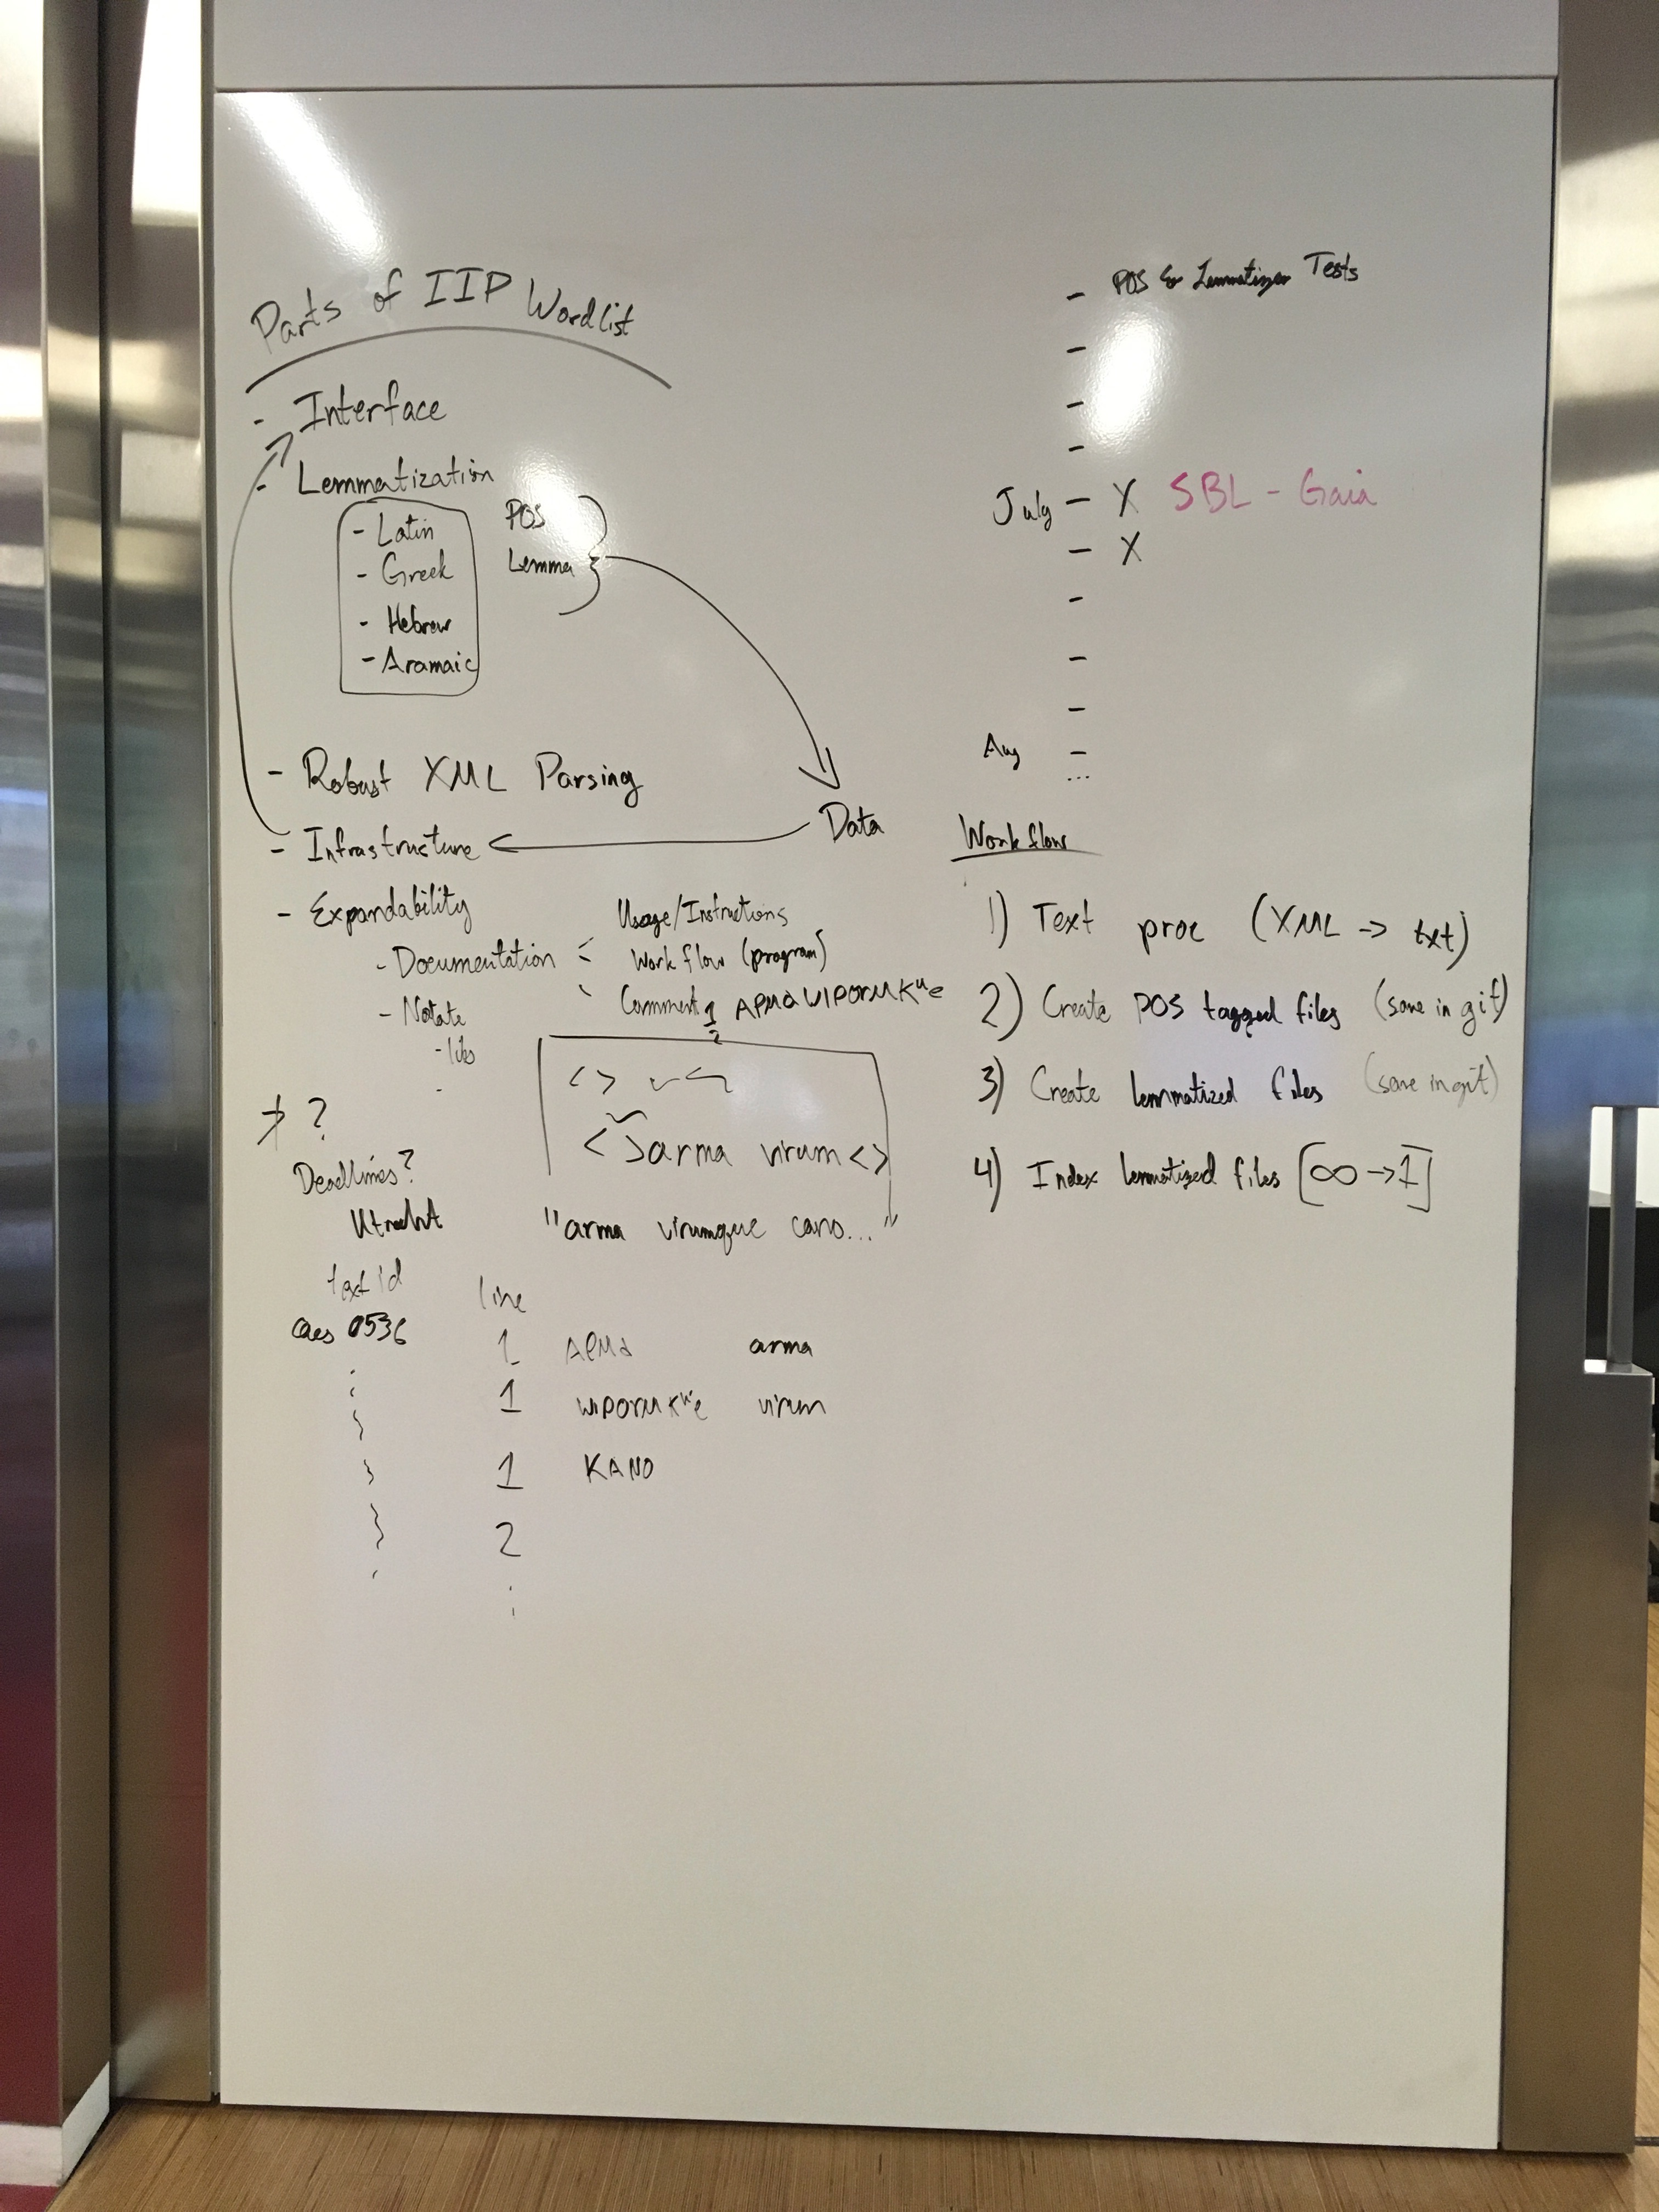 Parts of IIP Wordlist
- Interface
- Lemmatization
- Latin
- Greek
- Hebrew
- Aramaic
POS
Lemma
- Robust XML Parsing
- Infrastructure
Data
- Expandability
- Documentation
Usage/Instructions
Workflow (program)
Comments
- Notate
- libs
-
1 APMAWIPORMKWe
2
<>
< >arma virum<>
"arma virumque cano..."
?
Deadlines?
Utrecht
text id line
caes 0536 1 APMA arma
1 WIPORMKWe virum
1 KANO
2
- POS & Lemmatizer Tests
-
-
-
July - X SBL - Gaia
- X
-
-
-
Aug -
...
Workflow
1) Text proc (XML -> txt)
2) Create POS tagged files (save in git)
3) Create lemmatized files (save in git)
4) Index lemmatized files [∞ → 1]